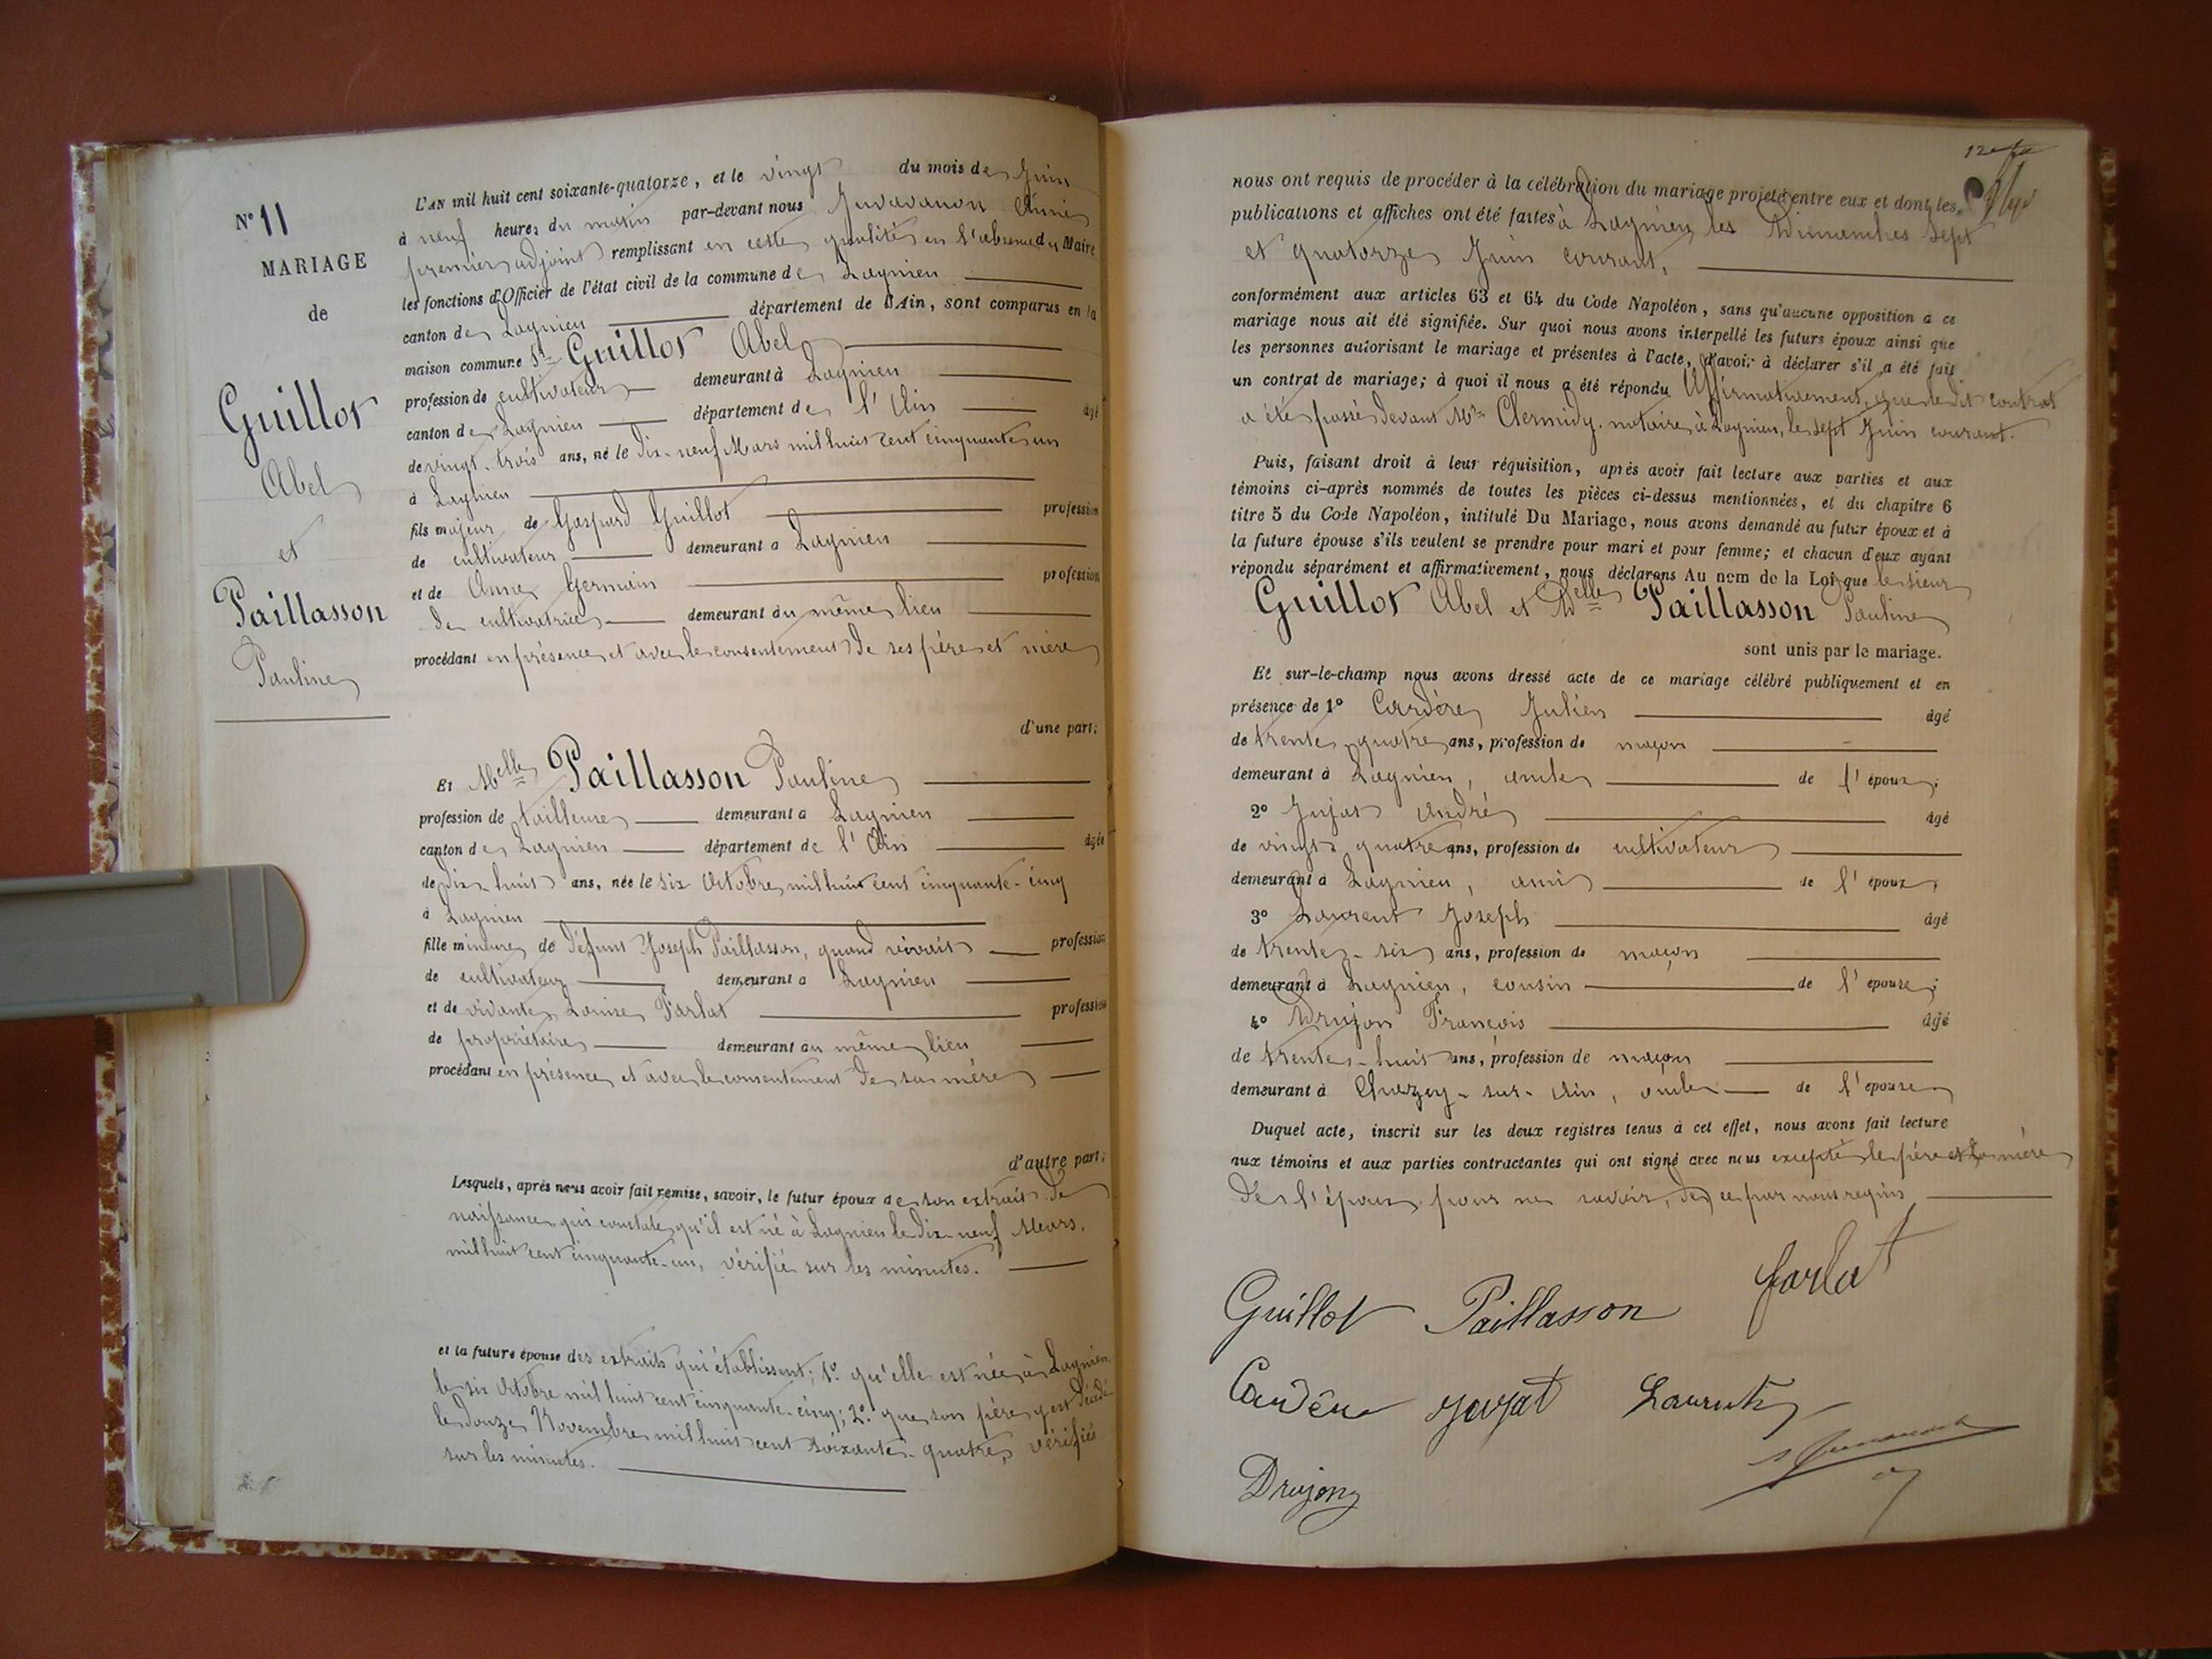 N° 11
MARIAGE
de
Guillot
Abel
et
Paillasson
Pauline
L'AN mil huit cent soixante-quatorze, et le vingt du mois de Juin
à neuf heures du matin par-devant nous
premier adjoint remplissant en cette qualité en l'absence du Maire
les fonctions d'Officier de l'état civil de la commune de Lagnieu
canton de Lagnieu département de l'Ain, sont comparus en la
maison commune Sr Guillot Abel
profession de cultivateur demeurant à Lagnieu
canton de Lagnieu département de l'Ain âgé
de vingt-trois ans, né le dix-neuf Mars mil huit cent cinquante un
à Lagnieu
fils majeur de Gaspard Guillot profession
de cultivateur demeurant à Lagnieu
et de Anne Germain profession
de cultivatrice demeurant au même lieu
procédant en présence et avec le consentement de ses père et mère
d'une part;
Et Melle Paillasson Pauline
profession de tailleuse demeurant à Lagnieu
canton de Lagnieu département de l'Ain âgée
de dix-huit ans, née le six Octobre mil huit cent cinquante-cinq
à Lagnieu
fille mineure de défunt Joseph Paillasson, quand vivait profession
de cultivateur demeurant à Lagnieu
et de vivante Louise Farlat profession
de propriétaire demeurant au même lieu
procédant en présence et avec le consentement de sa mère
d'autre part;
Lesquels, après nous avoir fait remise, savoir, le futur époux de son extrait de
naissance qui constate qu'il est né à Lagnieu le dix-neuf Mars
mil huit cent cinquante-un, vérifié sur les minutes.
et la future épouse des extraits qui établissent; 1° qu'elle est née à Lagnieu
le six Octobre mil huit cent cinquante-cinq; 2° que son père y est décédé
le douze Novembre mil huit cent soixante-quatre, vérifiés
sur les minutes.
nous ont requis de procéder à la célébration du mariage projeté entre eux et dont les
publications et affiches ont été faites à Lagnieu les Dimanches sept
et quatorze Juin courant,
conformément aux articles 63 et 64 du Code Napoléon, sans qu'aucune opposition à ce
mariage nous ait été signifiée. Sur quoi nous avons interpellé les futurs époux ainsi que
les personnes autorisant le mariage et présentes à l'acte, d'avoir à déclarer s'il a été fait
un contrat de mariage; à quoi il nous a été répondu Affirmativement, que le dit contrat
a été passé devant Me Clermidy, notaire à Lagnieu, le sept Juin courant.
Puis, faisant droit à leur réquisition, après avoir fait lecture aux parties et aux
témoins ci-après nommés de toutes les pièces ci-dessus mentionnées, et du chapitre 6
titre 5 du Code Napoléon, intitulé Du Mariage, nous avons demandé au futur époux et à
la future épouse s'ils veulent se prendre pour mari et pour femme; et chacun d'eux ayant
répondu séparément et affirmativement, nous déclarons Au nom de la Loi que le sieur
Guillot Abel et Delle Paillasson Pauline
sont unis par le mariage.
Et sur-le-champ nous avons dressé acte de ce mariage célébré publiquement et en
présence de 1° Cardère Julien âgé
de trente-quatre ans, profession de maçon
demeurant à Lagnieu, oncle de l'époux;
2° Jujat André âgé
de vingt-quatre ans, profession de cultivateur
demeurant à Lagnieu, ami de l'époux;
3° Laurent Joseph âgé
de trente-six ans, profession de maçon
demeurant à Lagnieu, cousin de l'épouse;
4° Drujon François âgé
de trente-huit ans, profession de maçon
demeurant à Chazey-sur-Ain, oncle de l'épouse
Duquel acte, inscrit sur les deux registres tenus à cet effet, nous avons fait lecture
aux témoins et aux parties contractantes qui ont signé avec nous excepté le père et la mère
de l'époux pour ne savoir, de ce par nous requis
Guillot Paillasson farlat
Cardère Jujat Laurent
Drujon